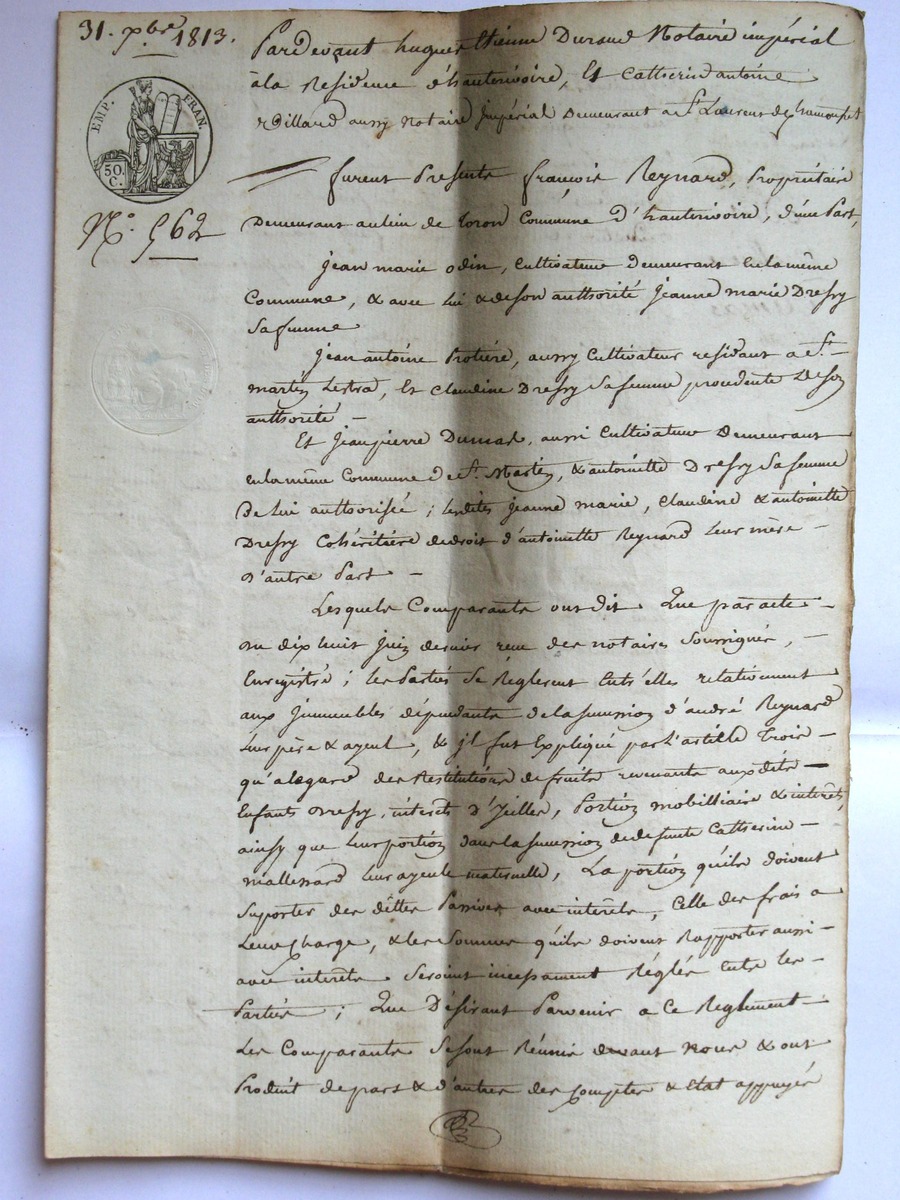 31. xbre 1813.
EMP. FRAN.
50. C.
N.° 562
Pardevant hugues Etienne Durand Notaire impérial
à la Residence d'hauterivoire, Et Catherin antoine
Rillard aussy notaire Impérial Demeurant a St Laurent de Chamousset
furent Presents françois Reynard, Propriétaire
Demeurant au lieu de Toron Commune d'hauterivoire, d'une Part,
Jean marie odin, Cultivateur demeurant en la même
Commune, & avec lui & de son authorité Jeanne marie Dressy
Sa femme
Jean antoine Protière, aussy Cultivateur residant a St
martin Lestra, Et Claudine Dressy Sa femme procedente de Son
authorité
Et Jean pierre Dumas, aussi Cultivateur Demeurant
en la même Commune de St. Martin, & antoinette Dressy Sa femme
De lui authorisée ; lesdites Jeanne marie, Claudine & antoinette
Dressy Cohéritière de droit d'antoinette Reynard leur mère
d'autre Part
Lesquels Comparants ont dit Que par acte
du dix huit Juin dernier reçu des notaires Soussignés,
Enregistré ; les Parties Se Reglerent Entr'elles relativement
aux Immeubles dépendants de la succession d'andré Reynard
leur père & ayeul, & jl fut Expliqué par l'article Trois
qu'a legard des Restitutions de fruits revenants aux dits
Enfants Dressy, interêts d'Iceller, Portion mobilliaire & interêts
ainsy que leur portion dans la succession de defunte Catherine
mallessard leur ayeule maternelle, La portion qu'ils doivent
Suporter des dêttes Passives avec interêts, Celle des frais a
Leur Charge, & les Sommes qu'ils doivent Rapporter aussi
avec interêts Seroint incessament Réglés Entre les
Parties ; Que Désirant Parvenir a Ce Reglement
Les Comparants Se sont Réunis devant Nous & ont
Produit de part & d'autres des Comptes & Etat appuyés